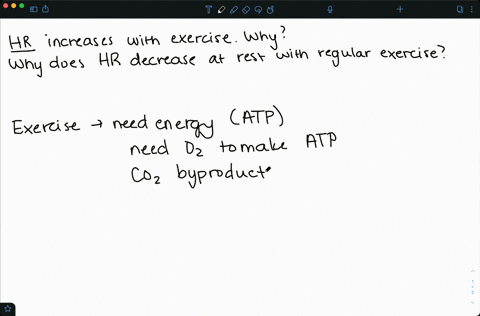 HR increases with exercise. Why?
Why does HR decrease at rest with regular exercise?
Exercise → need energy (ATP)
need O₂ to make ATP
CO₂ byproduct